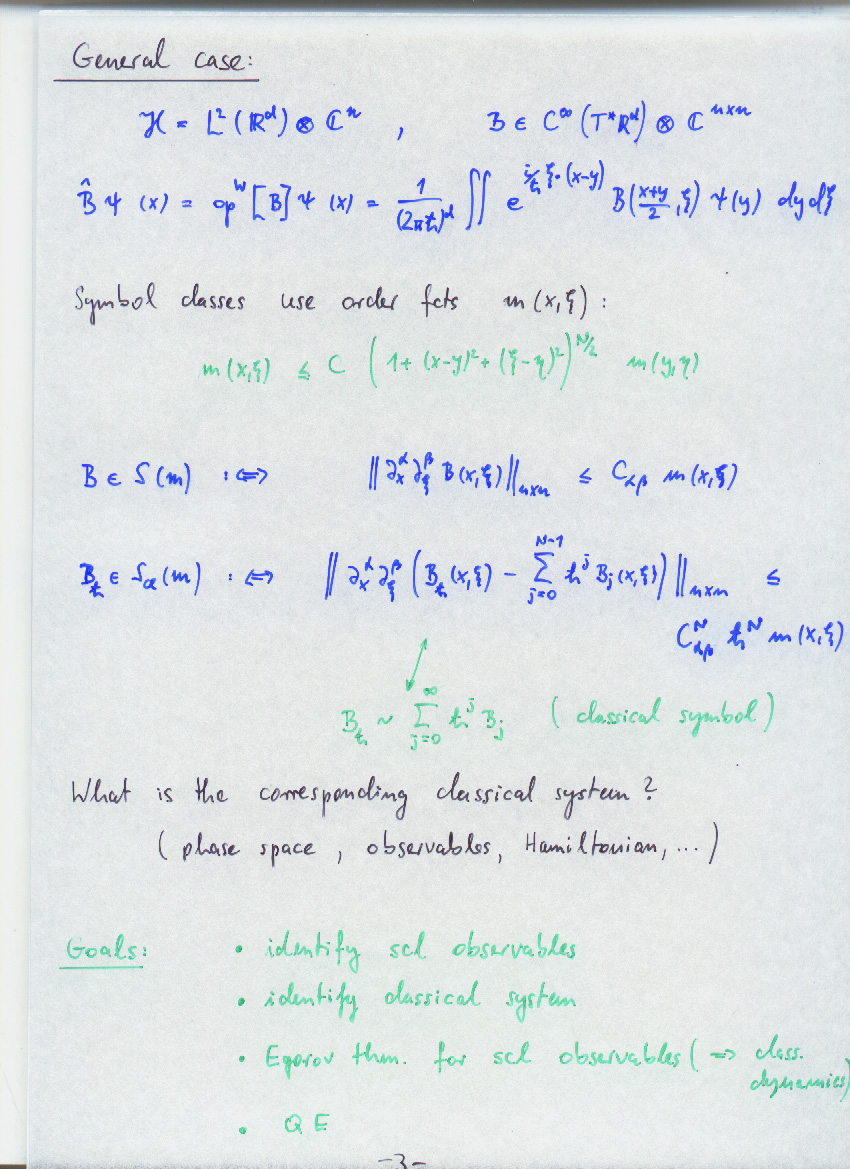 General case:
ℋ = L²(ℝᵈ) ⊗ ℂⁿ , B ∈ C^∞(T*ℝᵈ) ⊗ ℂ^{n×n}
B̂ψ (x) = op^W[B]ψ (x) = 1/(2πħ)^d ∬ e^{i/ħ ξ·(x-y)} B((x+y)/2, ξ) ψ(y) dy dξ
Symbol classes use order fcts m(x,ξ):
m(x,ξ) ≤ C (1+(x-y)²+(ξ-η)²)^{N/2} m(y,η)
B ∈ S(m) :⇔ ‖∂_x^α ∂_ξ^β B(x,ξ)‖_{n×n} ≤ C_{αβ} m(x,ξ)
B_ħ ∈ S_{cl}(m) :⇔ ‖∂_x^α ∂_ξ^β (B_ħ(x,ξ) - Σ_{j=0}^{N-1} ħ^j B_j(x,ξ))‖_{n×n} ≤
C_{αβ}^N ħ^N m(x,ξ)
↕
B_ħ ~ Σ_{j=0}^∞ ħ^j B_j (classical symbol)
What is the corresponding classical system?
(phase space, observables, Hamiltonian, ...)
Goals: • identify scl observables
• identify classical system
• Egorov thm. for scl observables (⇒ class.
dynamics)
• QE
-3-